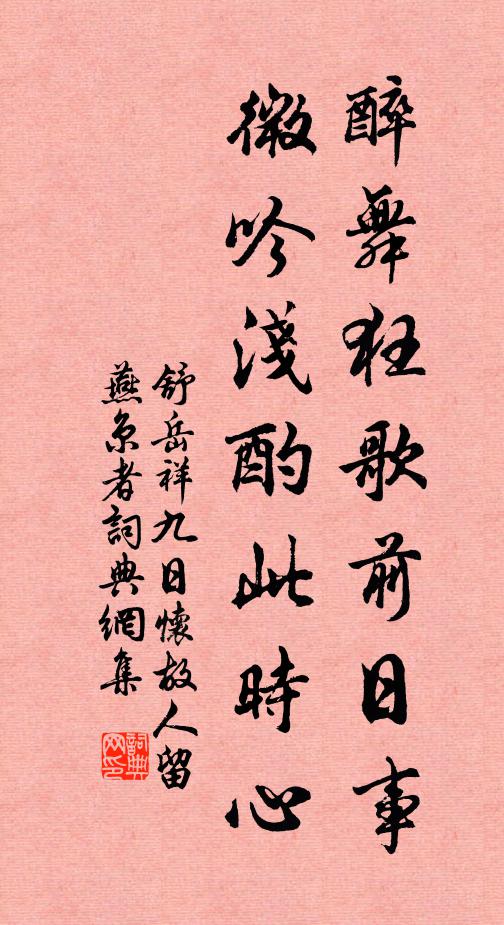 醉舞狂歌前日事
微吟淺酌此時心
舒岳祥九日懷故人留
燕京者詞典網集
詞典
网印